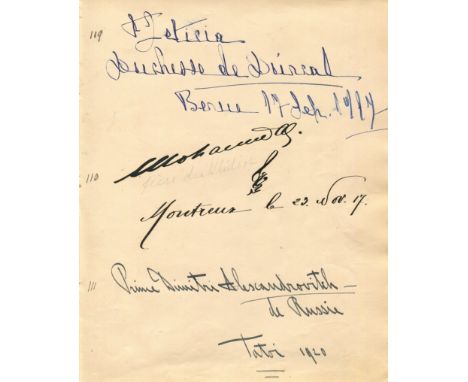 119
Leticia
Duchesse de Dúrcal
Berne 17 Sep. 1917
110
Mohamed Ali.
frère du Khédive
Montreux le 23. Nov. 17.
111
Prince Dimitri Alexandrovitch
de Russie
Tatoi 1920